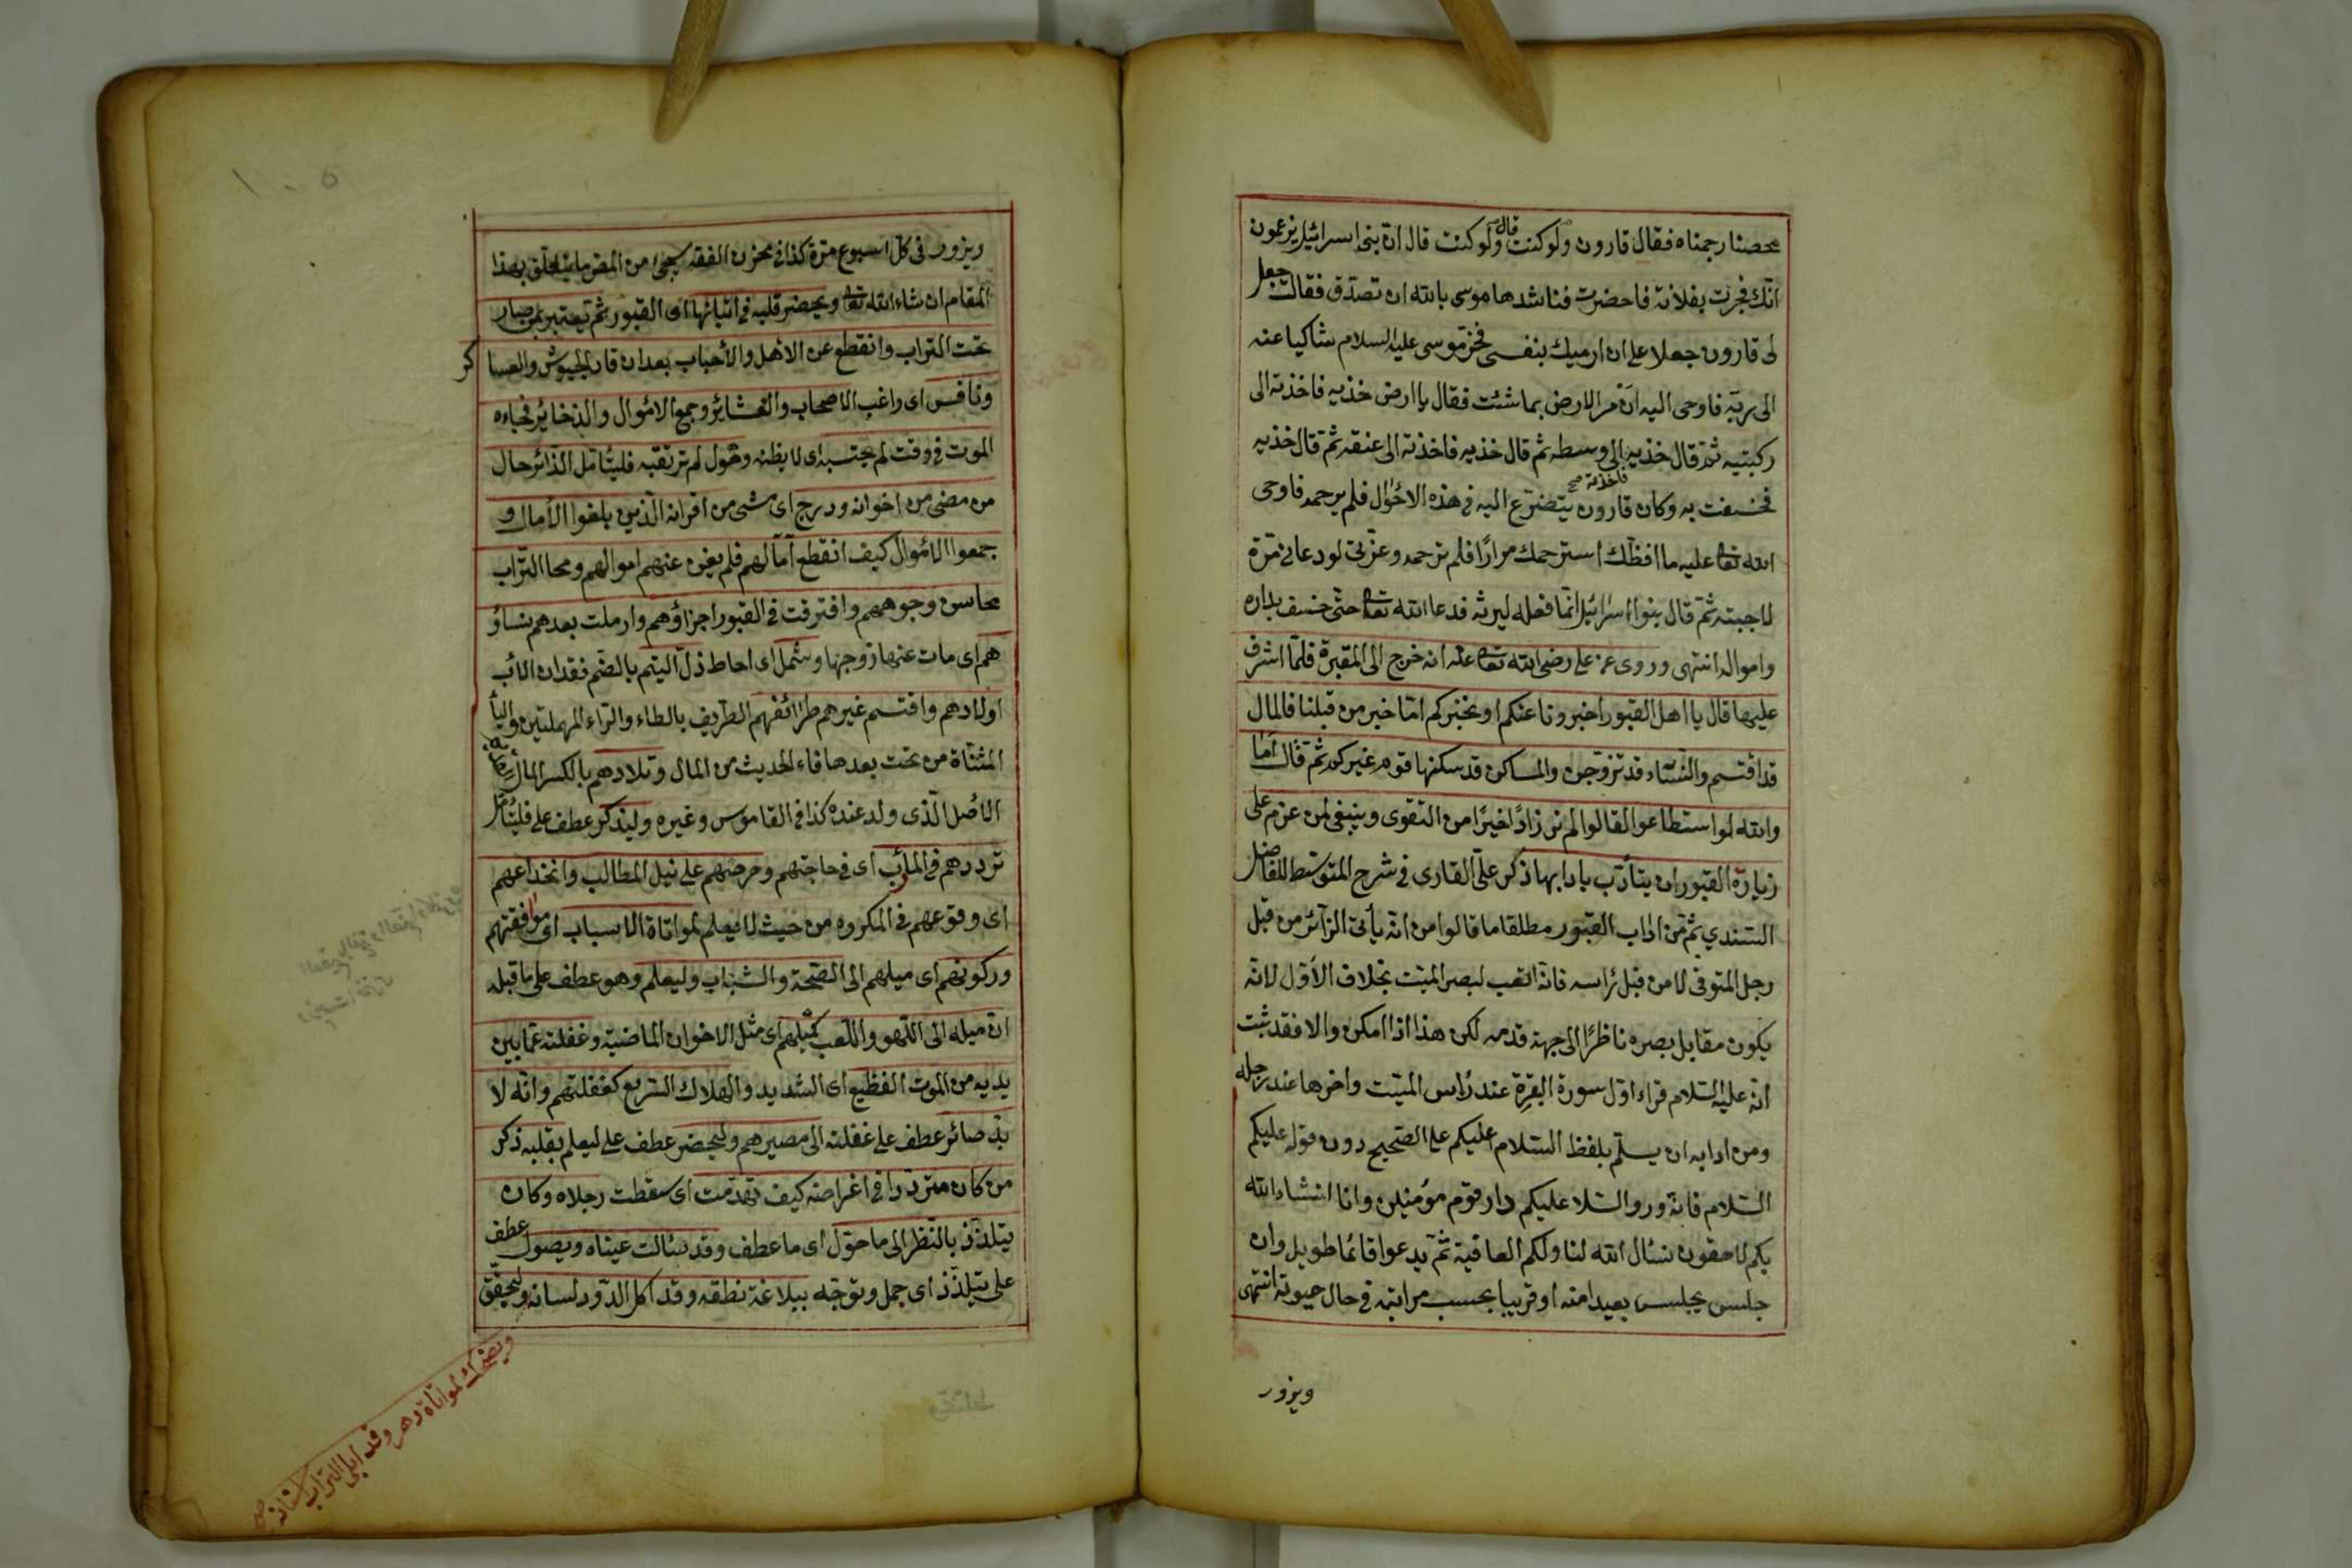 محصنا رجمناه فقال قارون ولو كنت قال ولو كنت قال ان بنى اسرائيل يزعمون
انك فجرت بفلانة فاحضرت فناشدها موسى بالله ان تصدق فقالت جعل
لى قارون جعلا على ان ارميك بنفسى فخر موسى عليه السلام شاكيا عنه
الى ربه فاوحى اليه ان مر الارض بما شئت فقال يا ارض خذيه فاخذته الى
ركبتيه ثم قال خذيه فاخذته صح الى وسطه ثم قال خذيه فاخذته الى عنقه ثم قال خذيه
فخسفت به وكان قارون يتضرع اليه فى هذه الاحوال فلم يرحمه فاوحى
الله تعا عليه ما افظك استرحمك مرارا فلم ترحمه وعزتى لو دعانى مرة
لاجبته ثم قال بنوا اسرائيل انما فعله ليرثه فدعا الله تعا حتى خسف بداره
وامواله انتهى وروى عن على رضى الله تعا عنه انه خرج الى المقبرة فلما اشرف
عليها قال يا اهل القبور اخبرونا عنكم او نخبركم اما خبر من قبلنا فالمال
قد اقتسم والنساء قد تزوجن والمساكن قد سكنها قوم غيركم ثم قال اما
والله لو استطاعوا لقالوا لم نر زادا خيرا من التقوى وينبغى لمن عزم على
زيارة القبور ان يتأدب بادابها ذكر على القارى فى شرح المتوسط للفاضل
السندي ثم من اداب القبور مطلقا ما قالوا من انه يأتى الزائر من قبل
رجل المتوفى لا من قبل رأسه فانه اتعب لبصر الميت بخلاف الاول لانه
يكون مقابل بصره ناظرا الى جهة قدمه لكن هذا اذا امكن والا فقد ثبت
انه عليه السلام قراء اول سورة البقرة عند رأس الميت واخرها عند رجله
ومن ادابه ان يسلم بلفظ السلام عليكم على الصحيح دون قوله عليكم
السلام فانه ورد السلا عليكم دار قوم مؤمنين وانا انشاء الله
بكم لاحقون نسأل الله لنا ولكم العافية ثم يدعوا قائما طويل وان
جلس يجلس بعيدا منه او قريبا بحسب مراتبه فى حال حيوته انتهى
ويزور
١٠٥
ويزور فى كل اسبوع مرة كذا فى مخزن الفقه سيجئ من المص ما يتعلق بهذا
المقام ان شاء الله تعا ويحضر قلبه فى اتيانها اى القبور ثم يعتبر بمن صار
تحت التراب وانقطع عن الاهل والأحباب بعد ان قاد الجيوش والعساكر
ونافس اى راغب الاصحاب والعشائر وجمع الاموال والذخائر فجاءه
الموت فى وقت لم يحتسبه اى لا يظنه وهول لم ترتقبه فليتأمل الزائر حال
من مضى من اخوانه ودرج اى مشى من اقرانه الذين بلغوا الأمال و
جمعوا الاموال كيف انقطع آمالهم فلم يغن عنهم اموالهم ومحا التراب
محاسن وجوههم وافترقت فى القبور اجزاؤهم وارملت بعدهم نساؤ
هم اى مات عنها زوجها وشمل اى احاط ذل اليتم بالضم فقدان الأب
اولادهم واقتسم غيرهم طرائفهم الطريف بالطاء والراء المهملتين والياء
المثناة من تحت بعدها فاء الحديث من المال وتلادهم بالكسر المال
الأصل الذى ولد عنده كذا فى القاموس وغيره وليذكر عطف على فليتأمل
ترددهم فى المأرب اى فى حاجتهم وحرصهم على نيل المطالب وانخداعهم
اى وقوعهم فى المكروه من حيث لا يعلم لمواتاة الاسباب اى موافقتهم
وركونهم اى ميلهم الى الصحة والشباب وليعلم وهو عطف على ما قبله
ان ميله الى اللهو واللعب كميلهم اى مثل الاخوان الماضية وغفلته عما بين
يديه من الموت الفظيع اى الشديد والهلاك السريع كغفلتهم وانه لا
بد صائر عطف على غفلته الى مصيرهم وليحضر عطف على ليعلم بقلبه ذكر
من كان مترددا فى اغراضه كيف تهدمت اى سقطت رجلاه وكان
يتلذذ بالنظر الى ما حول اى ما عطف وقد سالت عيناه ويصول عطف
على يتلذذ اى حمل وتوجه ببلاغة نطقه وقد اكل الدود لسانه وليحقق
ويضحك لمواتاة دهره وقد ابلى التراب اسنانه صح